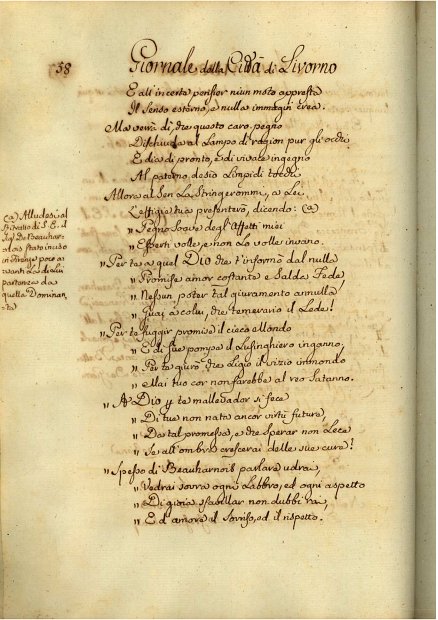 38
Giornale della Città di Livorno
E all'incerto pensier niun moto appresta
Il senso esterno, e nulla immagin crea.
Ma verrà dì, che questo caro pegno
Dischiuda al lampo di ragion pur gli occhi
E dia di pronto, e di vivace ingegno
Al paterno desio limpidi
Allora al sen la stringerommi, a lei
L'effigie tua presenterò, dicendo: (a)
" Pegno soave degli affetti miei
" volle, e non lo volle invano.
" Per te a quel DIO che t'informò dal nulla
" Promise amor costante e salda fede,
" Nessun poter tal giuramento annulla,
" Guai a colui, che temerario il lede!
" Per te fuggir promise il cieco Mondo
" E di sue pompe il lusinghiero inganno,
" Per te giurò che ligio il vizio immondo
" Mai tuo cor non farebbe al reo Satanno.
" A DIO per te mallevador si fece
" Di tue non nata ancor virtù future,
" Da tal promessa, e che sperar non lece
" Se all'ombra crescerai delle sue cure!
" Spesso di Beauharnois parlare udrai,
" Vedrai sovra ogni labbro, ed ogni aspetto
" Di gioia sfavillar non dubbi rai,
" E d'amore il sorriso, ed il rispetto.
(a) Alludesi al
Ritratto di S. E. il
Sig.r De Beauhar-
nois, stato inciso
in Firenze poco a-
vanti la di lui
partenza da
quella Dominan-
te)